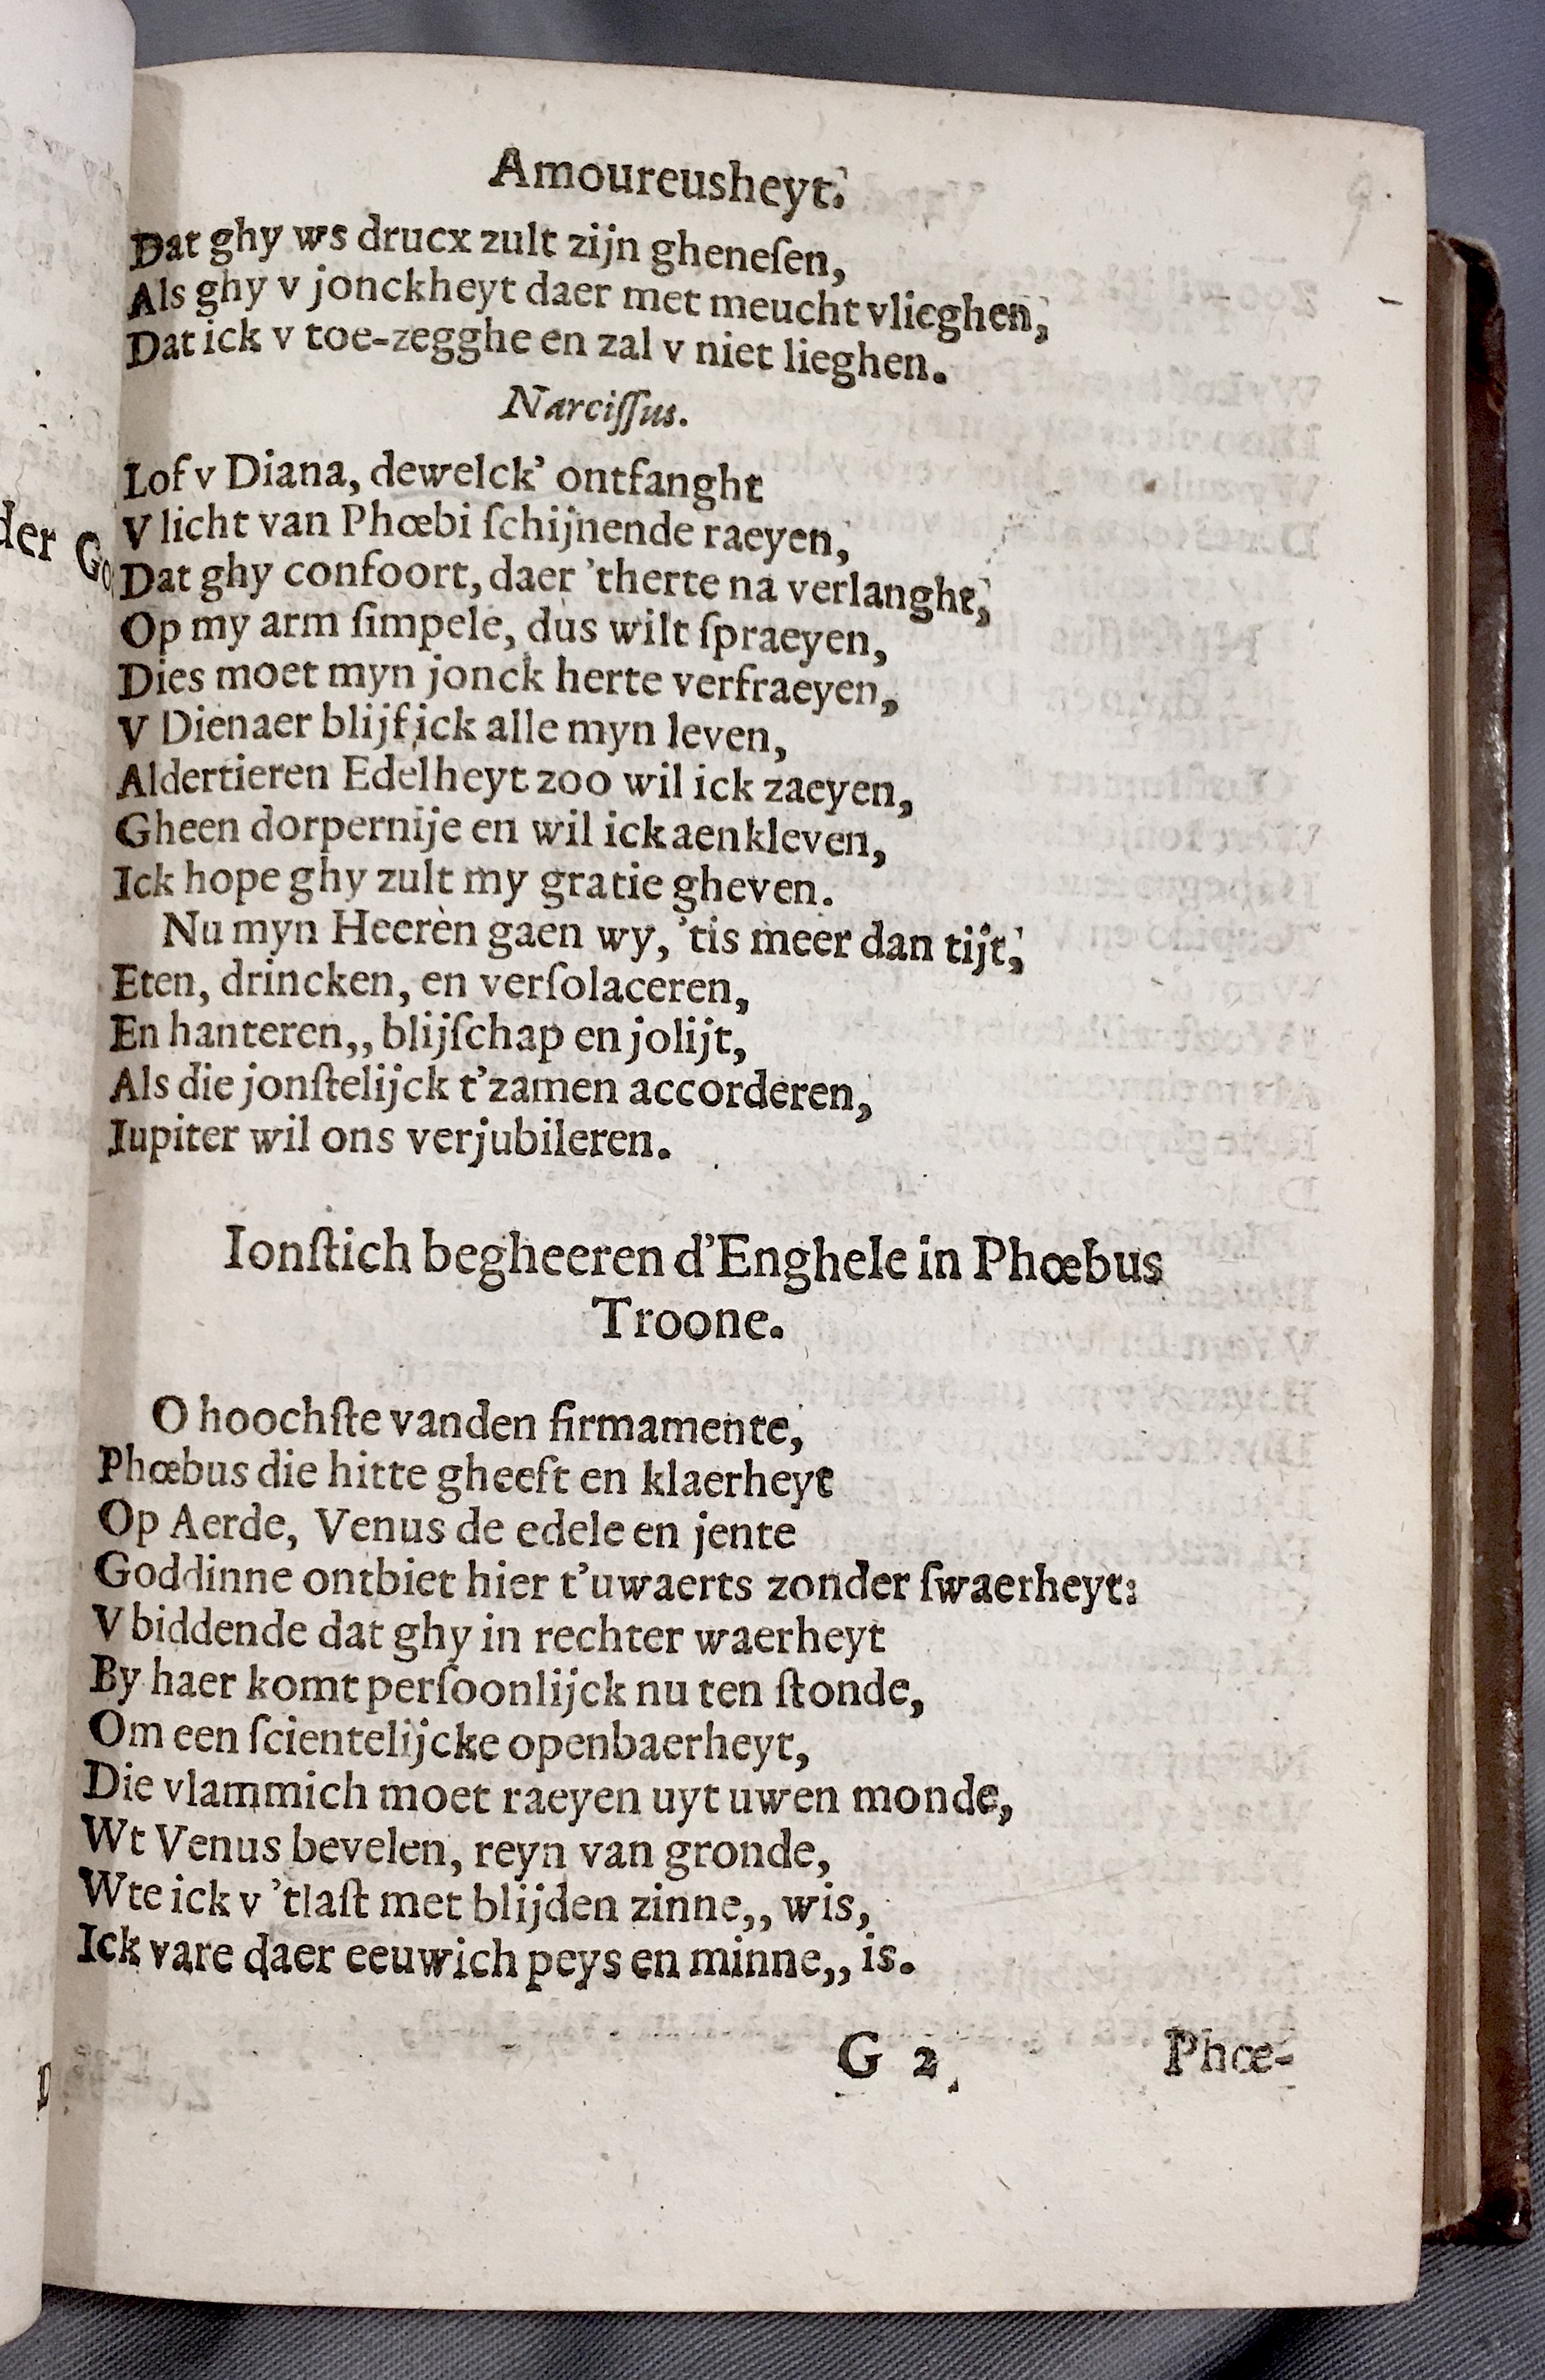 Amoureusheyt.
Dat ghy ws drucx zult zijn gheneſen,
Als ghy v jonckheyt daer met meucht vlieghen,
Dat ick v toe-zegghe en zal v niet lieghen.
Narciſſus.
Lof v Diana, dewelck' ontfanght
V licht van Phœbi ſchijnende raeyen,
Dat ghy confoort, daer 'therte na verlanght,
Op my arm ſimpele, dus wilt ſpraeyen,
Dies moet myn jonck herte verfraeyen,
V Dienaer blijf ick alle myn leven,
Aldertieren Edelheyt zoo wil ick zaeyen,
Gheen dorpernije en wil ick aenkleven,
Ick hope ghy zult my gratie gheven.
Nu myn Heeren gaen wy, 'tis meer dan tijt,
Eten, drincken, en verſolaceren,
En hanteren,, blijſchap en jolijt,
Als die jonſtelijck t'zamen accorderen,
Iupiter wil ons verjubileren.
Ionſtich begheeren d'Enghele in Phœbus
Troone.
O hoochſte vanden firmamente,
Phœbus die hitte gheeft en klaerheyt
Op Aerde, Venus de edele en jente
Goddinne ontbiet hier t'uwaerts zonder ſwaerheyt:
V biddende dat ghy in rechter waerheyt
By haer komt perſoonlijck nu ten ſtonde,
Om een ſcientelijcke openbaerheyt,
Die vlammich moet raeyen uyt uwen monde,
Wt Venus bevelen, reyn van gronde,
Wte ick v 'tlaſt met blijden zinne,, wis,
Ick vare daer eeuwich peys en minne,, is.
G 2
Phœ-
der Go